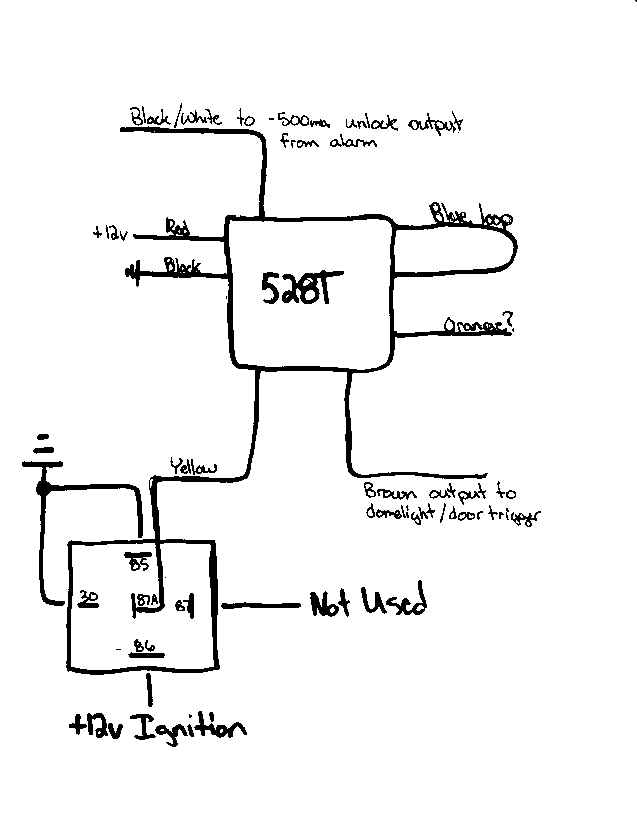 Black/White to -500ma unlock output
from alarm
+12v
Red
Black
528T
Blue loop
Orange?
Yellow
Brown output to
domelight/door trigger
85
30
87A
87
86
Not Used
+12v Ignition